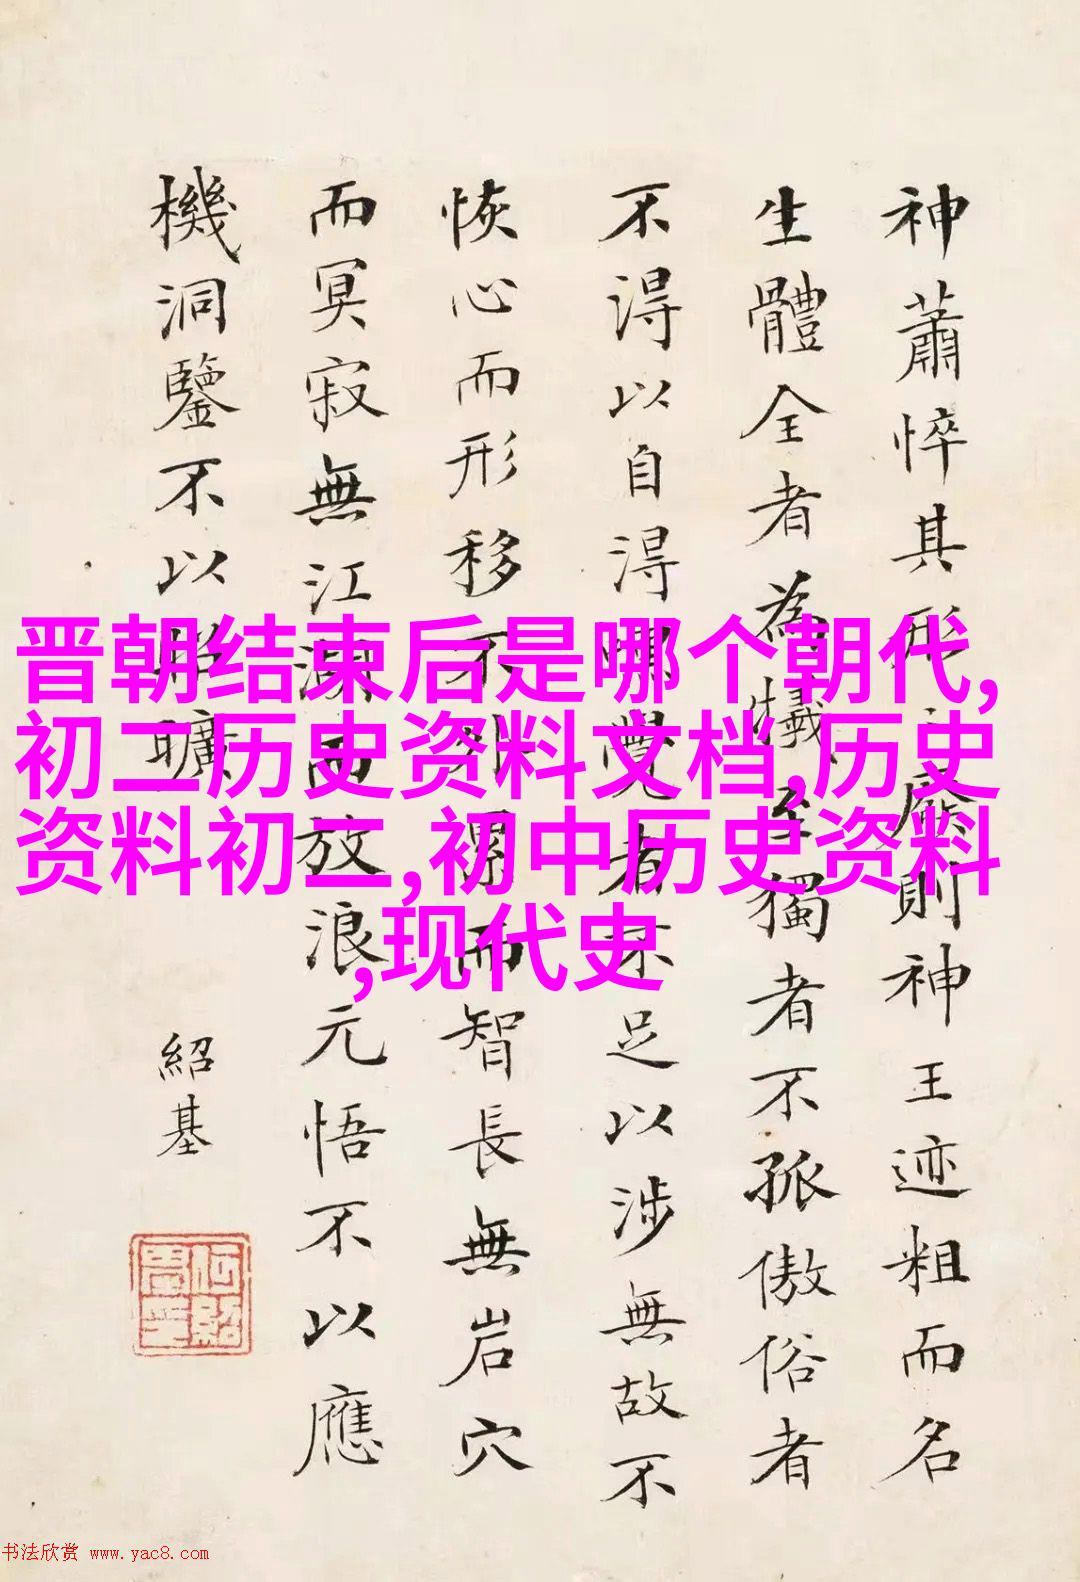 神蕭悴其形之廢則神王迹粗而名
生體全者為犧至獨者不孤傲俗者
不得以自得嘿覺者不足以涉無故不
恢心而形移不外累而智長無岩穴
而冥寂無江湖而放浪元悟不以應
機洞鑒不以昭曠
紹基
晋朝结束后是哪个朝代,
初二历史资料文档,历史
资料初二,初中历史资料
,现代史
书法欣赏 www.yac8.com